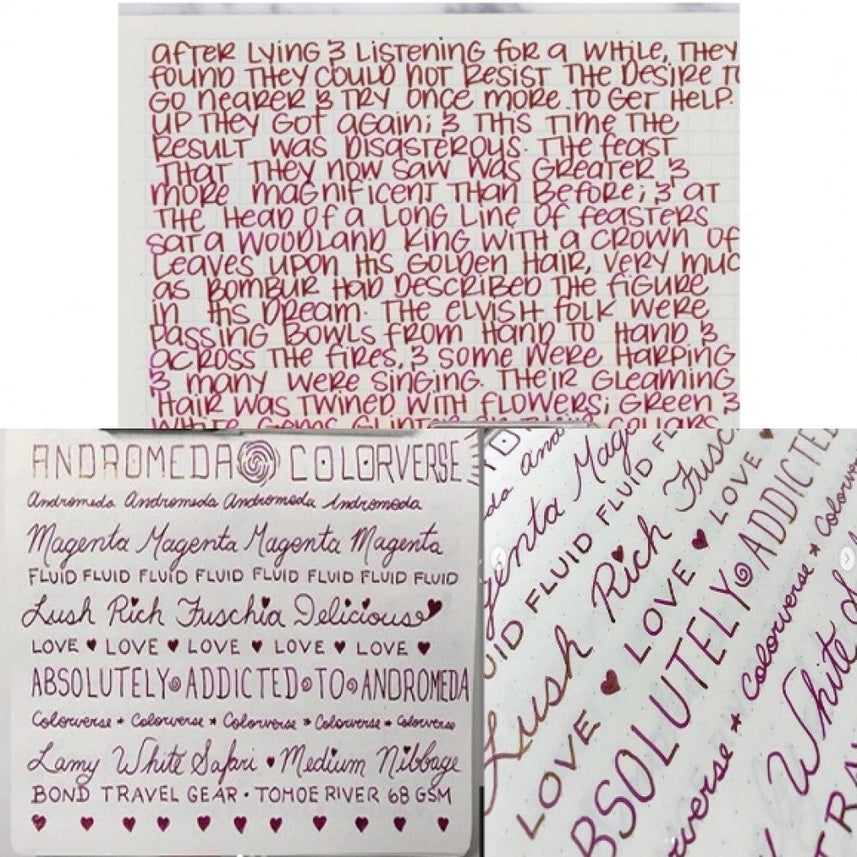 after Lying & Listening for a while, they
found they could not resist the desire to
go nearer & try once more to get help.
up they got again; & this time the
result was disasterous. The feast
that they now saw was greater &
more magnificent than before; & at
the head of a long line of feasters
sat a woodland king with a crown of
leaves upon his golden hair, very muc
as Bombur had described the figure
in his dream. The elvish folk were
passing bowls from hand to hand &
across the fires, & some were harping
& many were singing. Their gleaming
hair was twined with flowers; green &
white gems glinted on their collars
ANDROMEDA COLORVERSE
Andromeda Andromeda Andromeda Andromeda
Magenta Magenta Magenta Magenta
FLUID FLUID FLUID FLUID FLUID FLUID FLUID FLUID
Lush Rich Fuschia Delicious
LOVE ♥ LOVE ♥ LOVE ♥ LOVE ♥ LOVE ♥
ABSOLUTELY ADDICTED TO ANDROMEDA
Colorverse * Colorverse * Colorverse * Colorverse * Colorverse
Lamy White Safari ♥ Medium Nibbage
BOND TRAVEL GEAR • TOMOE RIVER 68 GSM
♥ ♥ ♥ ♥ ♥ ♥ ♥ ♥ ♥ ♥
da And
genta Mage
UID FLUID FLUID FLUID FL
Lush Rich Fusc
LOVE ♥ LOVE ♥ LOVE ♥
BSOLUTELY ADDICTED
verse * Colorverse * Colorve
White S
TRAV